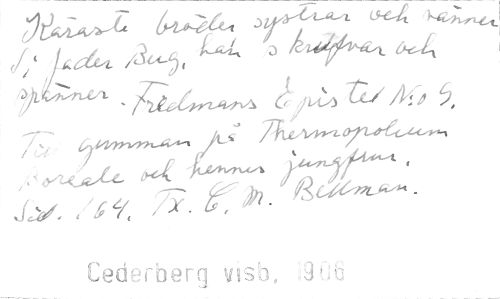 Käraste bröder systrar och vänner
Si, fader Berg, han skrufvar och
spänner. Fredmans Epistel No 9.
Till gumman på Thermopolium
Boreale och hennes jungfrur.
Sid. 164. Tx. C. M. Bellman.
Cederberg visb, 1906